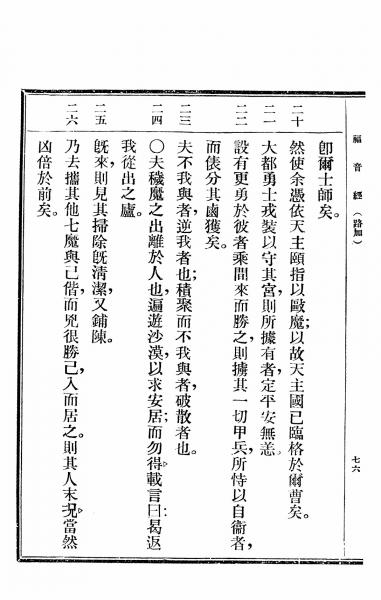 福音經（路加）
七六
卽爾士師矣。
二十 然使余憑依天主頤指以毆魔；以故天主國已臨格於爾曹矣。
二一 大都勇士戎裝以守其宮，則所據有者定平安無恙。
二二 設有更勇於彼者乘間來而勝之，則擄其一切甲兵，所恃以自衞者，
而俵分其鹵獲矣。
二三 夫不我與者，逆我者也；積聚而不我與者，破散者也。
二四 〇夫穢魔之出離於人也，遍遊沙漠，以求安居；而勿得，載言曰：曷返
我從出之廬。
二五 旣來，則見其掃除旣清潔，又鋪陳。
二六 乃去攜其他七魔與己偕，而兇很勝己，入而居之。則其人末況，當然
凶倍於前矣。